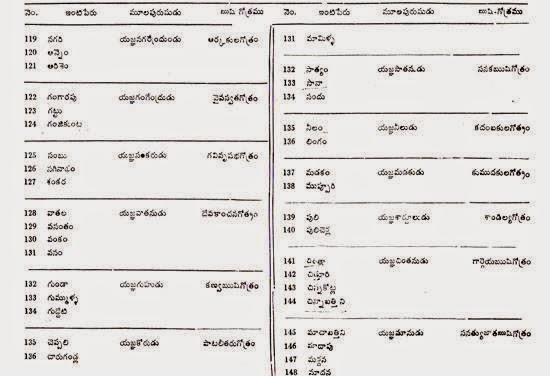 నెం. ఇంటిపేరు మూలపురుషుడు ఋషి గోత్రము
119 నగరి యజ్ఞనగరేంద్రుండు ఆర్కకులగోత్రం
120 అన్నెం
121 అరిశెం
122 గంగారపు యజ్ఞగంగేంద్రుడు వైవస్వతగోత్రం
123 గట్టు
124 గంజికుంట
125 సంబు యజ్ఞసంకరుడు గవివృషభగోత్రం
126 సగినాడం
127 శంకర
128 వాతల యజ్ఞవాతనుడు దేవకాంచనగోత్రం
129 వసంతం
130 వంకం
131 వనం
132 గుండా యజ్ఞగుహుండు కణ్వఋషిగోత్రం
133 గుమ్మళ్ళ
134 గుడ్డేటి
135 చెప్పలి యజ్ఞకోరుడు పాటలీతరుగోత్రం
136 చారుగండ్ల
నెం. ఇంటిపేరు మూలపురుషుడు ఋషి-గోత్రము
131 మామిళ్ళ
132 సాత్యం యజ్ఞసాతనుడు సనకఋషిగోత్రం
133 సానా
134 సందు
135 నీలం యజ్ఞనీలుడు కదంబకులగోత్రం
136 లింగం
137 మడకం యజ్ఞమడకుడు కుముదకులగోత్రం
138 ముప్పూరి
139 పులి యజ్ఞశార్దూలుడు శాండిల్యగోత్రం
140 పులిచెర్ల
141 చింత్లా యజ్ఞచింతనుడు గార్గేయఋషిగోత్రం
142 చిత్తూరి
143 చిన్నికొట్ల
144 చిన్నాబత్తిని
145 మాచాబత్తిని యజ్ఞమానుడు సనత్కుజాతఋషిగోత్రం
146 మాదాపు
147 మద్దన
148 మాదన